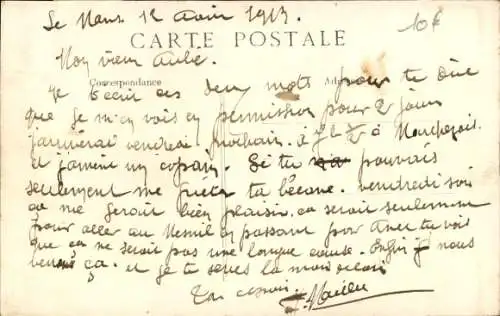 Le Mans 12 Aout 1913.
10€
CARTE POSTALE
Mon vieux
Correspondance
Je t'écrit ces deux mots pour te dire
que je m'en vois en permission pour 2 jours
j'arriverai vendredi prochain. à
et j'amène un copain. Si tu pouvais
seulement me preter ta bécane. vendredi soir
ça me ferait bien plaisir. ça serait seulement
pour aller au Mesnil en passant par Anet tu vois
que ça ne serait pas une longue course. Enfin nous
ça. et je te serres la main
Ton cousin.